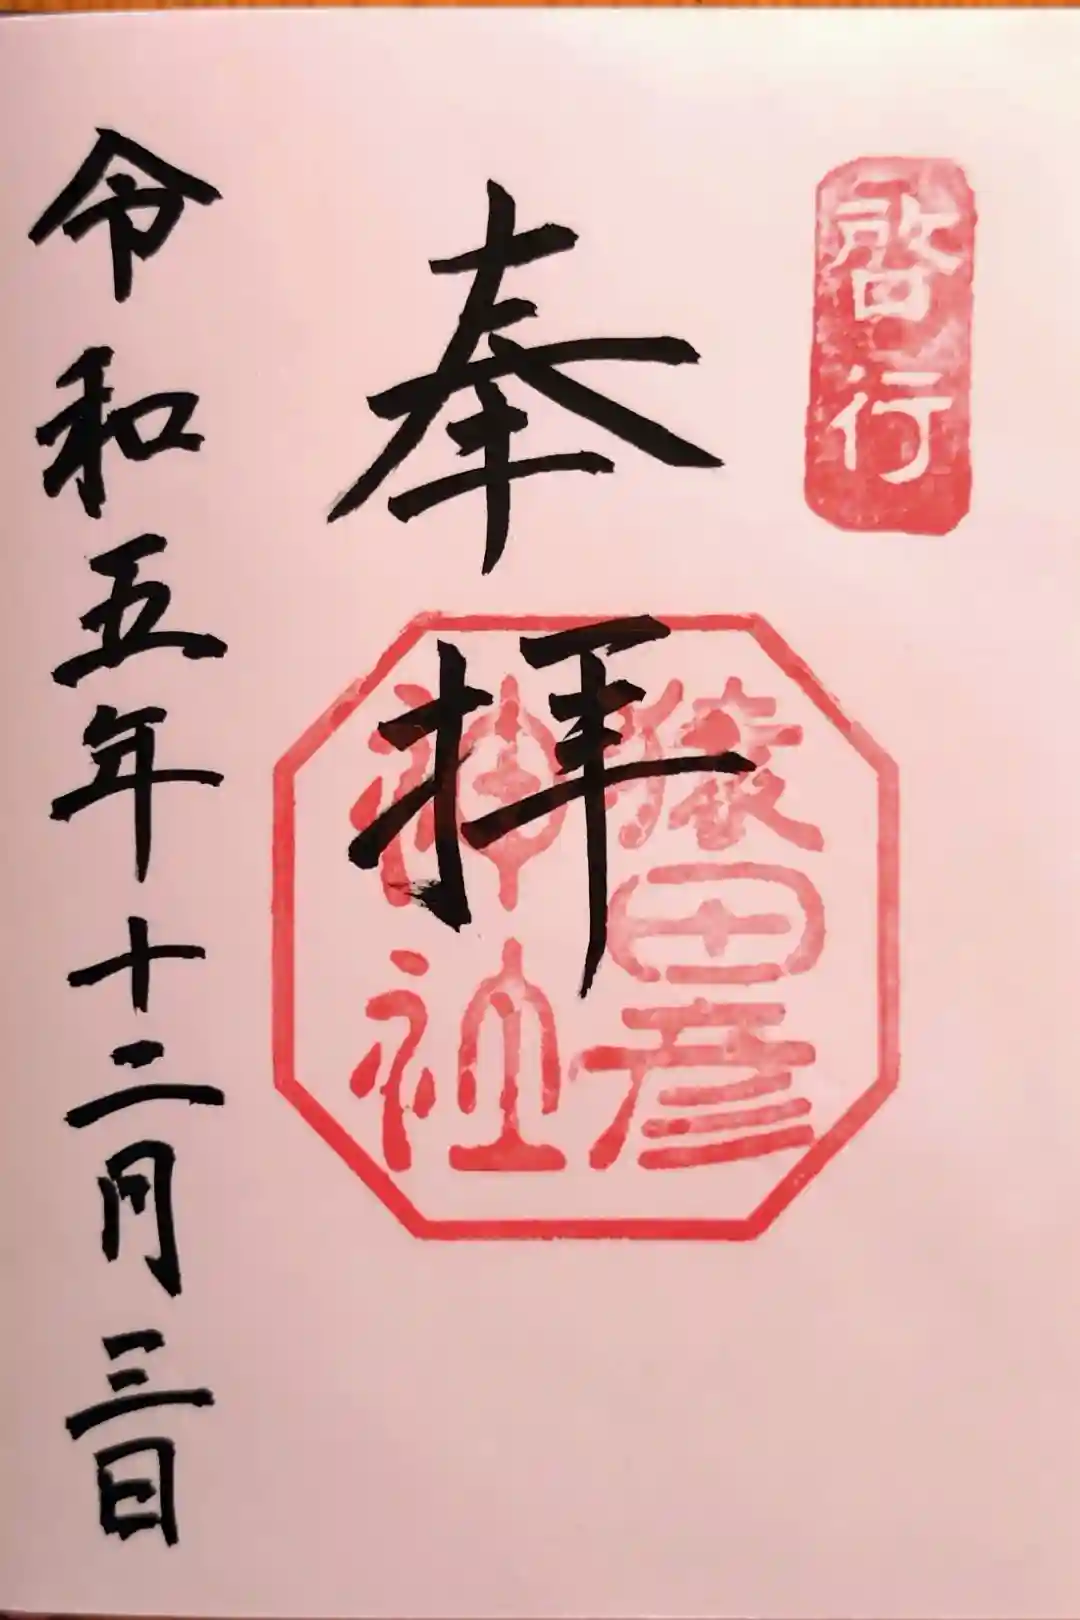 啓行
奉拝
猿田彦
神社
令和五年十二月三日